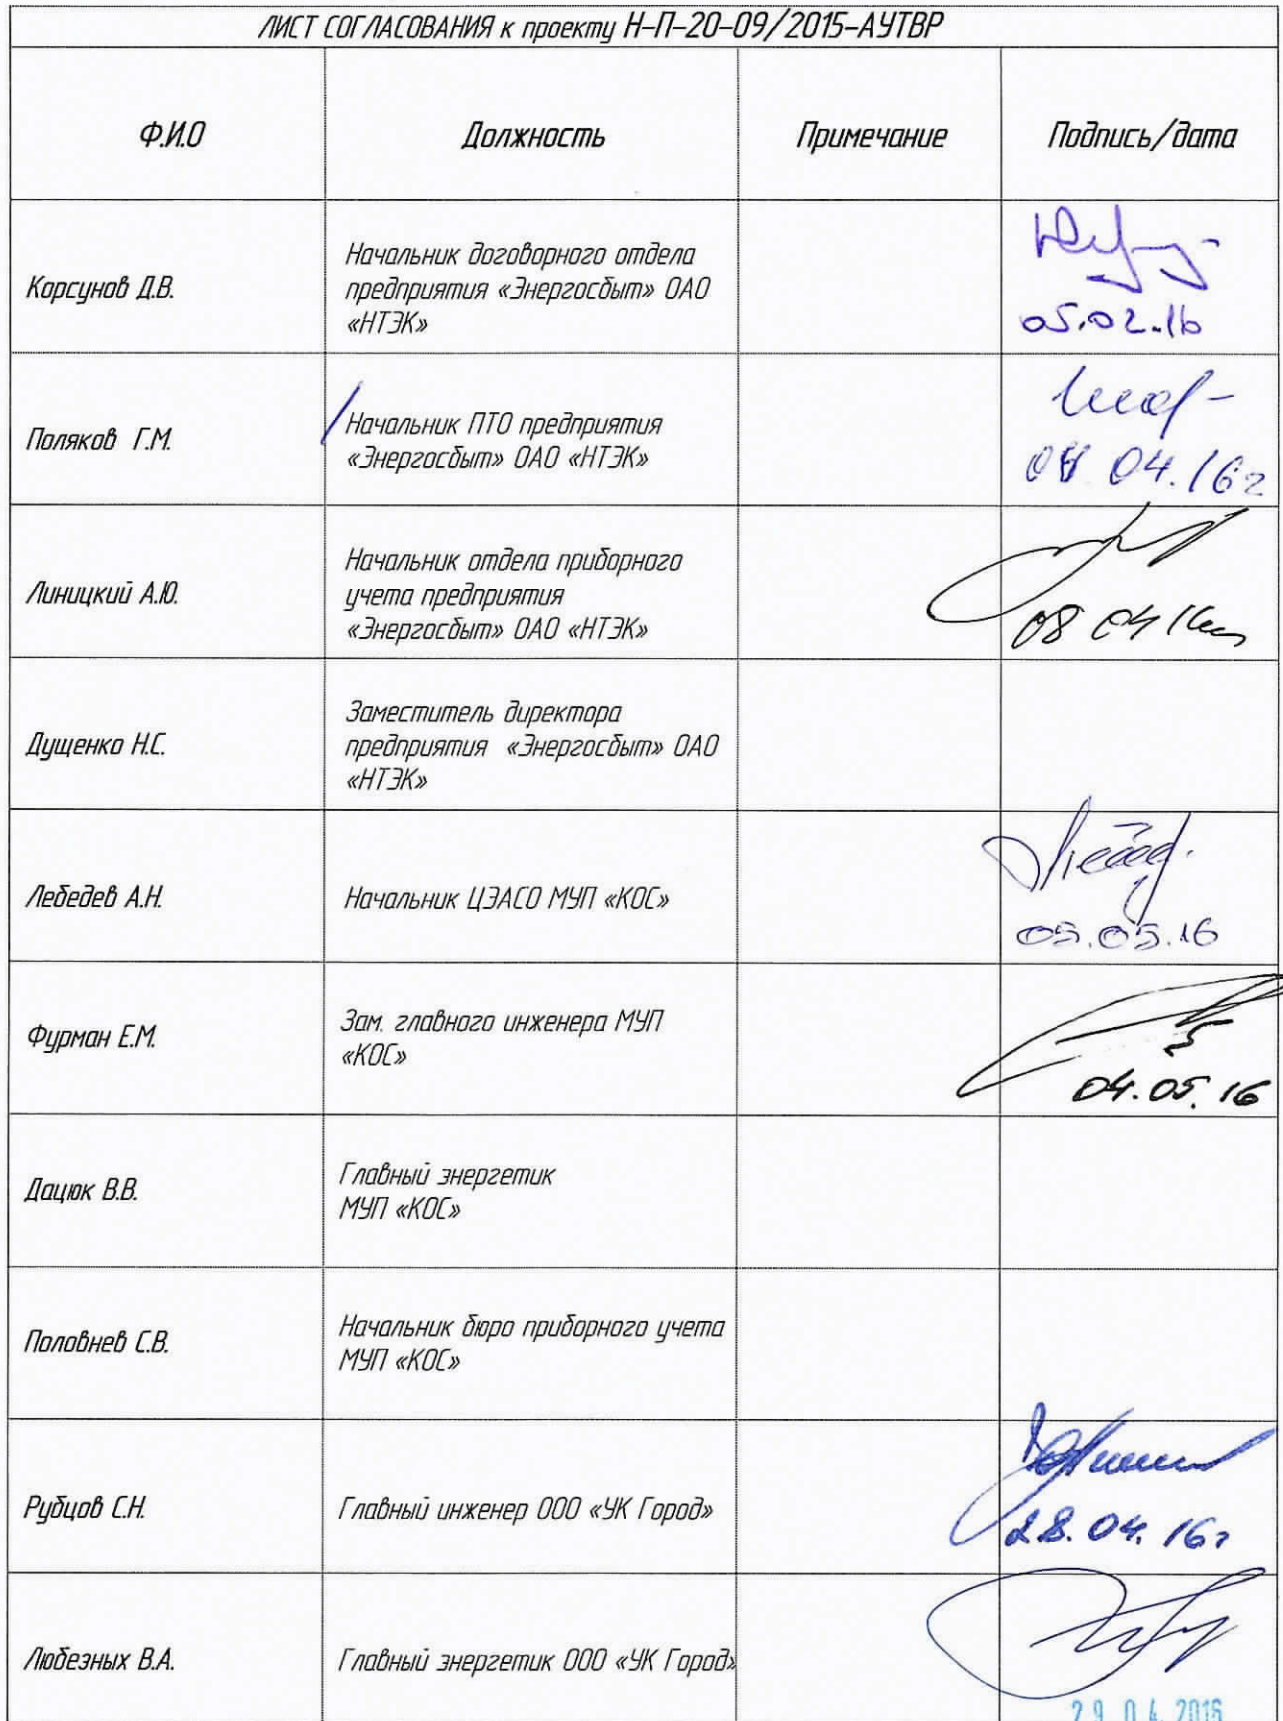 ЛИСТ СОГЛАСОВАНИЯ к проекту Н-П-20-09/2015-АУТВР
Ф.И.О Должность Примечание Подпись/дата
Корсунов Д.В.
Начальник договорного отдела
предприятия «Энергосбыт» ОАО
«НТЭК»
05.02.16
Поляков Г.М.
Начальник ПТО предприятия
«Энергосбыт» ОАО «НТЭК»
04.16г
Линицкий А.Ю.
Начальник отдела приборного
учета предприятия
«Энергосбыт» ОАО «НТЭК»
08 04 16г
Дущенко Н.С.
Заместитель директора
предприятия «Энергосбыт» ОАО
«НТЭК»
Лебедев А.Н.
Начальник ЦЭАСО МУП «КОС»
05.05.16
Фурман Е.М.
Зам. главного инженера МУП
«КОС»
04.05.16
Дацюк В.В.
Главный энергетик
МУП «КОС»
Половнев С.В.
Начальник бюро приборного учета
МУП «КОС»
Рубцов С.Н.
Главный инженер ООО «УК Город»
28.04.16г
Любезных В.А.
Главный энергетик ООО «УК Город»
29 04 2016